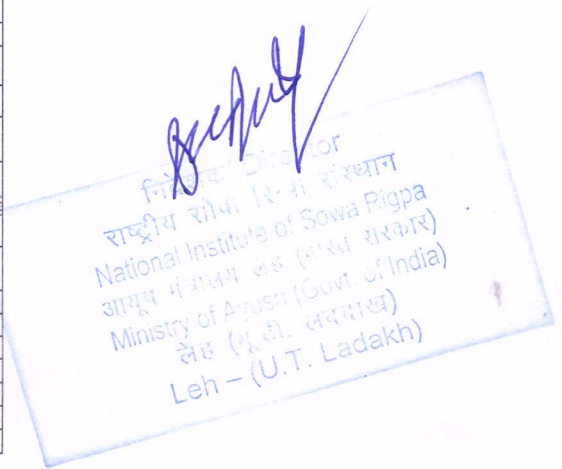 निदेशक/ Director
राष्ट्रीय सोवा रिग्पा संस्थान
National Institute of Sowa Rigpa
आयुष मंत्रालय लेह (भारत सरकार)
Ministry of Ayush (Govt. of India)
लेह (यू.टी. लद्दाख)
Leh – (U.T. Ladakh)